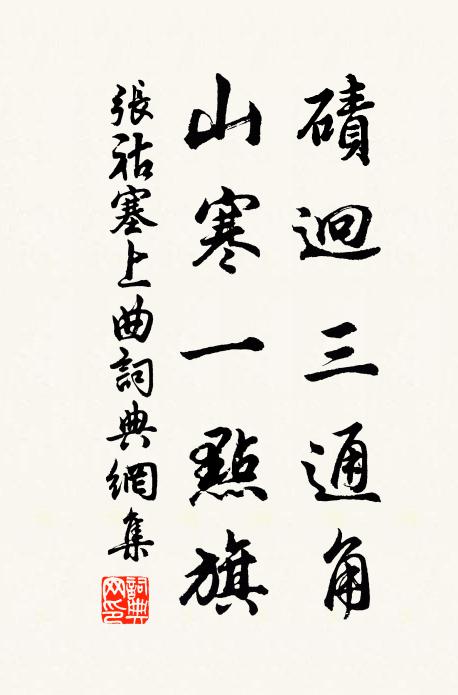 磧迴三通角
山寒一點旗
張祜塞上曲詞典網集
詞典網印